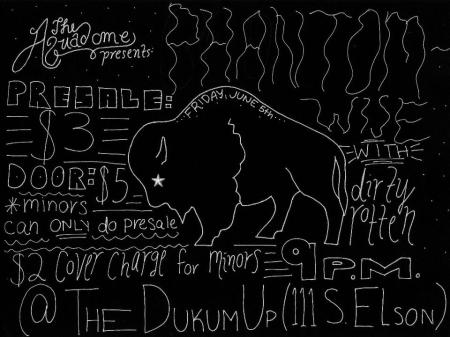 The
Aquadome
presents:
PHANTOM
PRESALE:
$3
FRIDAY, JUNE 5th
DOOR: $5
*minors
can ONLY do presale
WITH
dirty
rotten
$2 Cover Charge for minors
9 P.M.
@ THE DUKUM UP (111 S. ELSON)